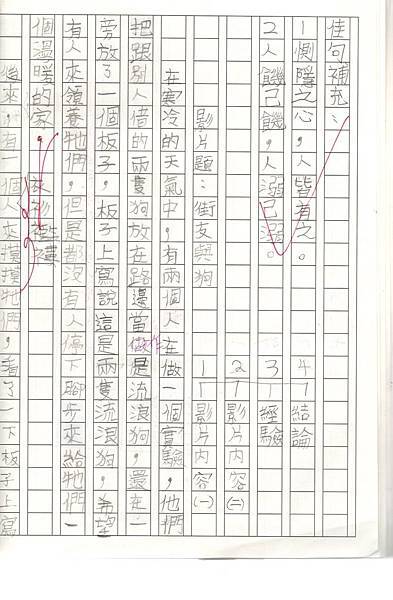 佳句補充：
1惻隱之心，人皆有之。 4結論
2人饑己饑，人溺己溺。 3經驗
2影片內容(二)
影片題：街友與狗 1影片內容(一)
在寒冷的天氣中，有兩個人在做一個實驗，他們
把跟別人借的兩隻狗放在路邊當做作是流浪狗，還在
旁放了一個板子，板子上寫說這是兩隻流浪狗，希望
有人來領養牠們，但是都沒有人停下腳步來給牠們一
個溫暖的家， 襤褸
後來，有一個人來摸摸牠們，看了一下板子上寫